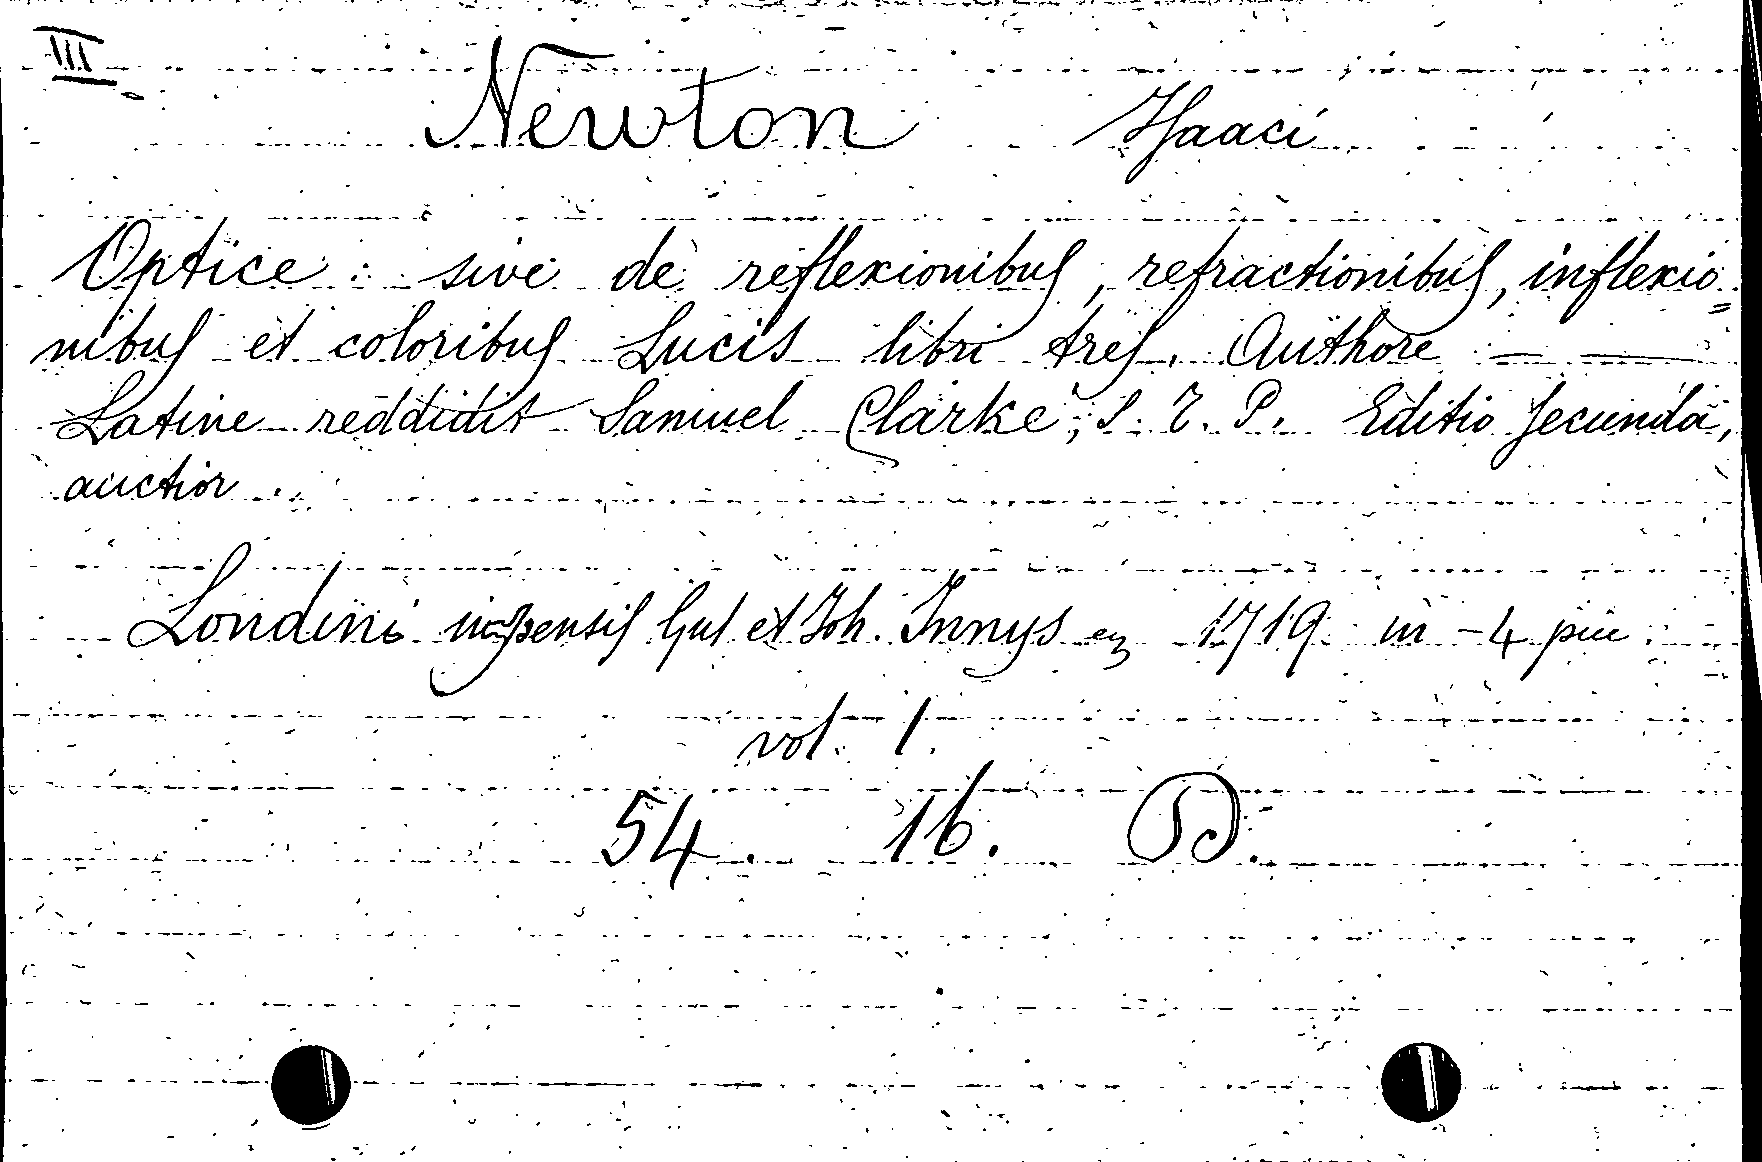 III
Newton Isaaci
Optice : sive de reflexionibus, refractionibus, inflexio=
nibus et coloribus Lucis libri tres. Authore — —
Latine reddidit Samuel Clarke, S. T. P. Editio secunda,
auctior.
Londini impensis Gul et Joh. Innys 1719 in-4 piu.
vol. 1.
54. 16. D.